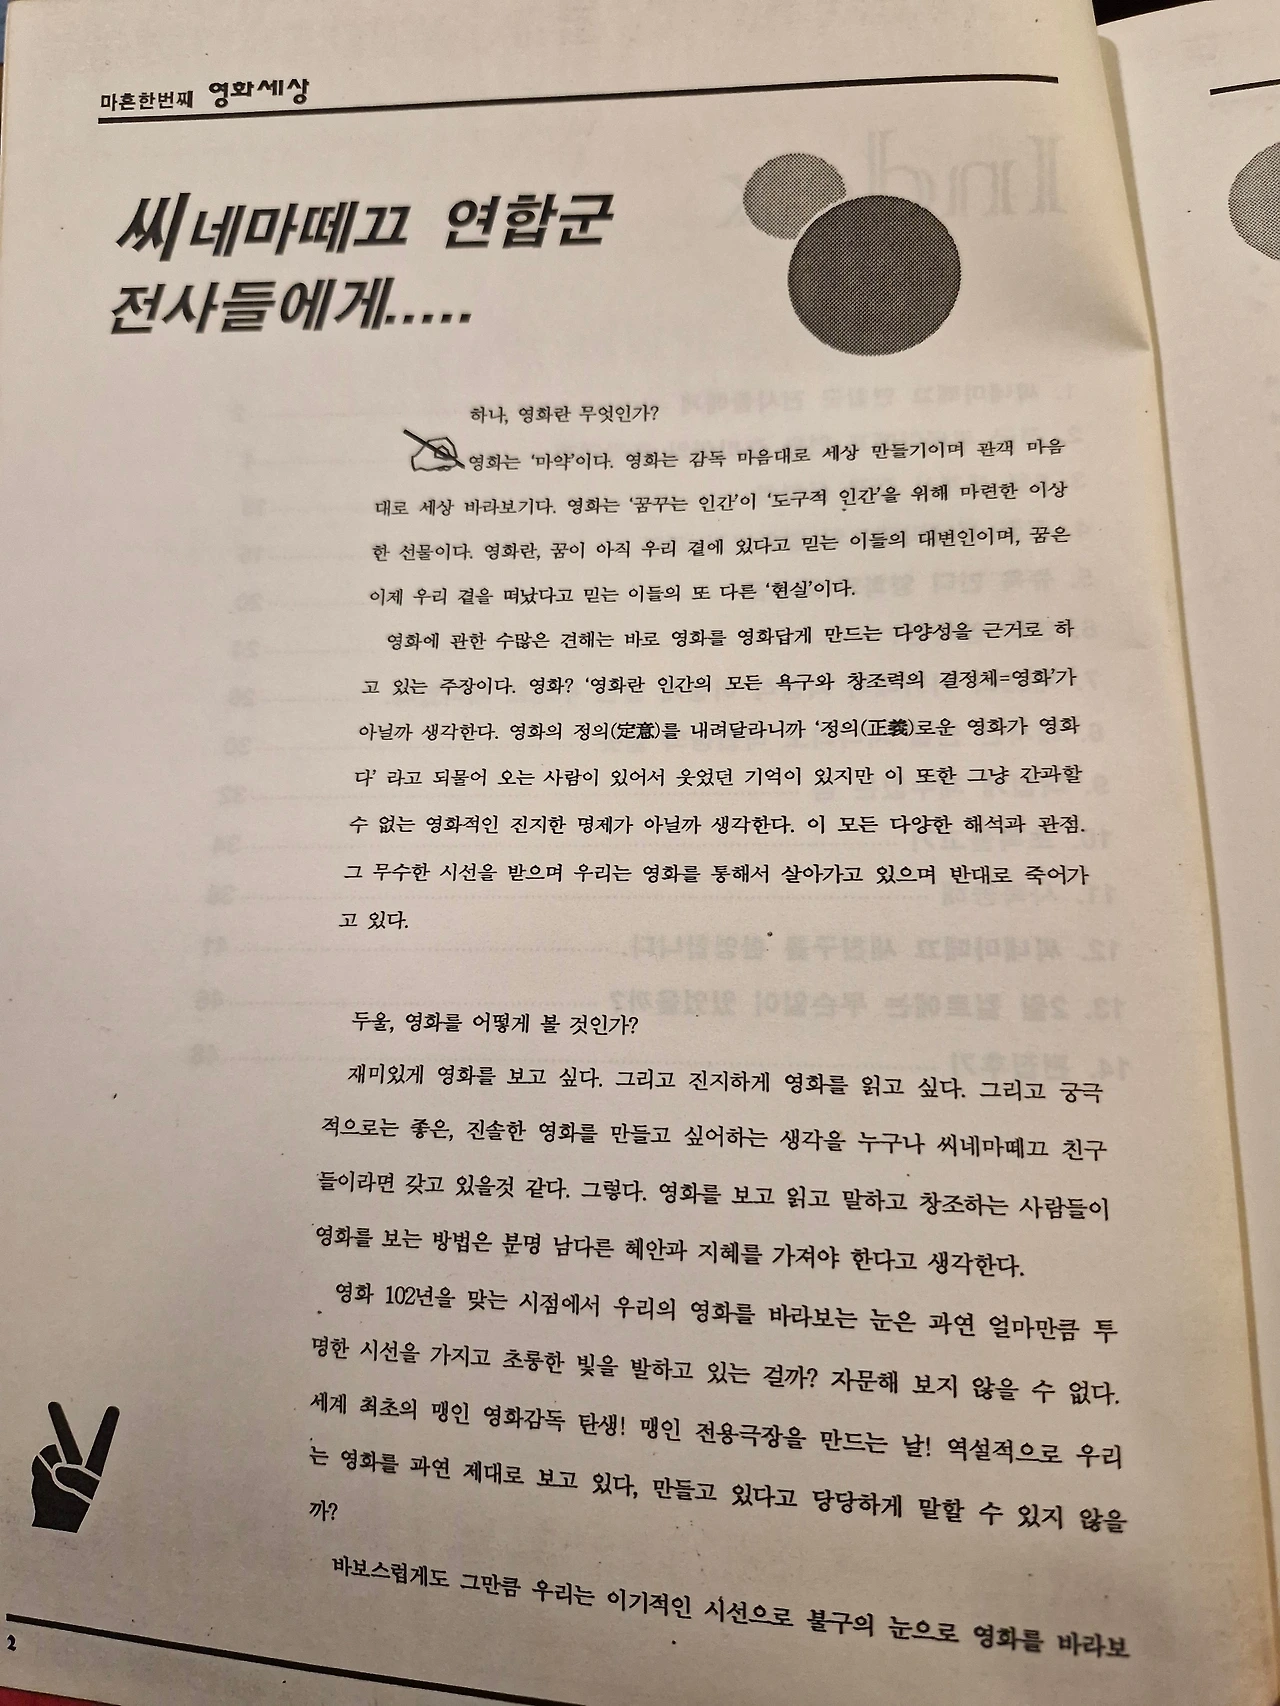 마흔한번째 영화세상
씨네마떼끄 연합군
전사들에게.....
하나, 영화란 무엇인가?
영화는 '마약'이다. 영화는 감독 마음대로 세상 만들기이며 관객 마음
대로 세상 바라보기다. 영화는 '꿈꾸는 인간'이 '도구적 인간'을 위해 마련한 이상
한 선물이다. 영화란, 꿈이 아직 우리 곁에 있다고 믿는 이들의 대변인이며, 꿈은
이제 우리 곁을 떠났다고 믿는 이들의 또 다른 '현실'이다.
영화에 관한 수많은 견해는 바로 영화를 영화답게 만드는 다양성을 근거로 하
고 있는 주장이다. 영화? '영화란 인간의 모든 욕구와 창조력의 결정체=영화'가
아닐까 생각한다. 영화의 정의(定意)를 내려달라니까 '정의(正義)로운 영화가 영화
다' 라고 되물어 오는 사람이 있어서 웃었던 기억이 있지만 이 또한 그냥 간과할
수 없는 영화적인 진지한 명제가 아닐까 생각한다. 이 모든 다양한 해석과 관점.
그 무수한 시선을 받으며 우리는 영화를 통해서 살아가고 있으며 반대로 죽어가
고 있다.
두울, 영화를 어떻게 볼 것인가?
재미있게 영화를 보고 싶다. 그리고 진지하게 영화를 읽고 싶다. 그리고 궁극
적으로는 좋은, 진솔한 영화를 만들고 싶어하는 생각을 누구나 씨네마떼끄 친구
들이라면 갖고 있을것 같다. 그렇다. 영화를 보고 읽고 말하고 창조하는 사람들이
영화를 보는 방법은 분명 남다른 혜안과 지혜를 가져야 한다고 생각한다.
영화 102년을 맞는 시점에서 우리의 영화를 바라보는 눈은 과연 얼마만큼 투
명한 시선을 가지고 초롱한 빛을 발하고 있는 걸까? 자문해 보지 않을 수 없다.
세계 최초의 맹인 영화감독 탄생! 맹인 전용극장을 만드는 날! 역설적으로 우리
는 영화를 과연 제대로 보고 있다, 만들고 있다고 당당하게 말할 수 있지 않을
까?
바보스럽게도 그만큼 우리는 이기적인 시선으로 불구의 눈으로 영화를 바라보
2